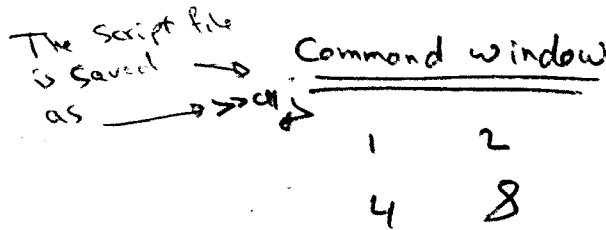 The Script file
is saved
as
Command window
>>
1 2
4 8